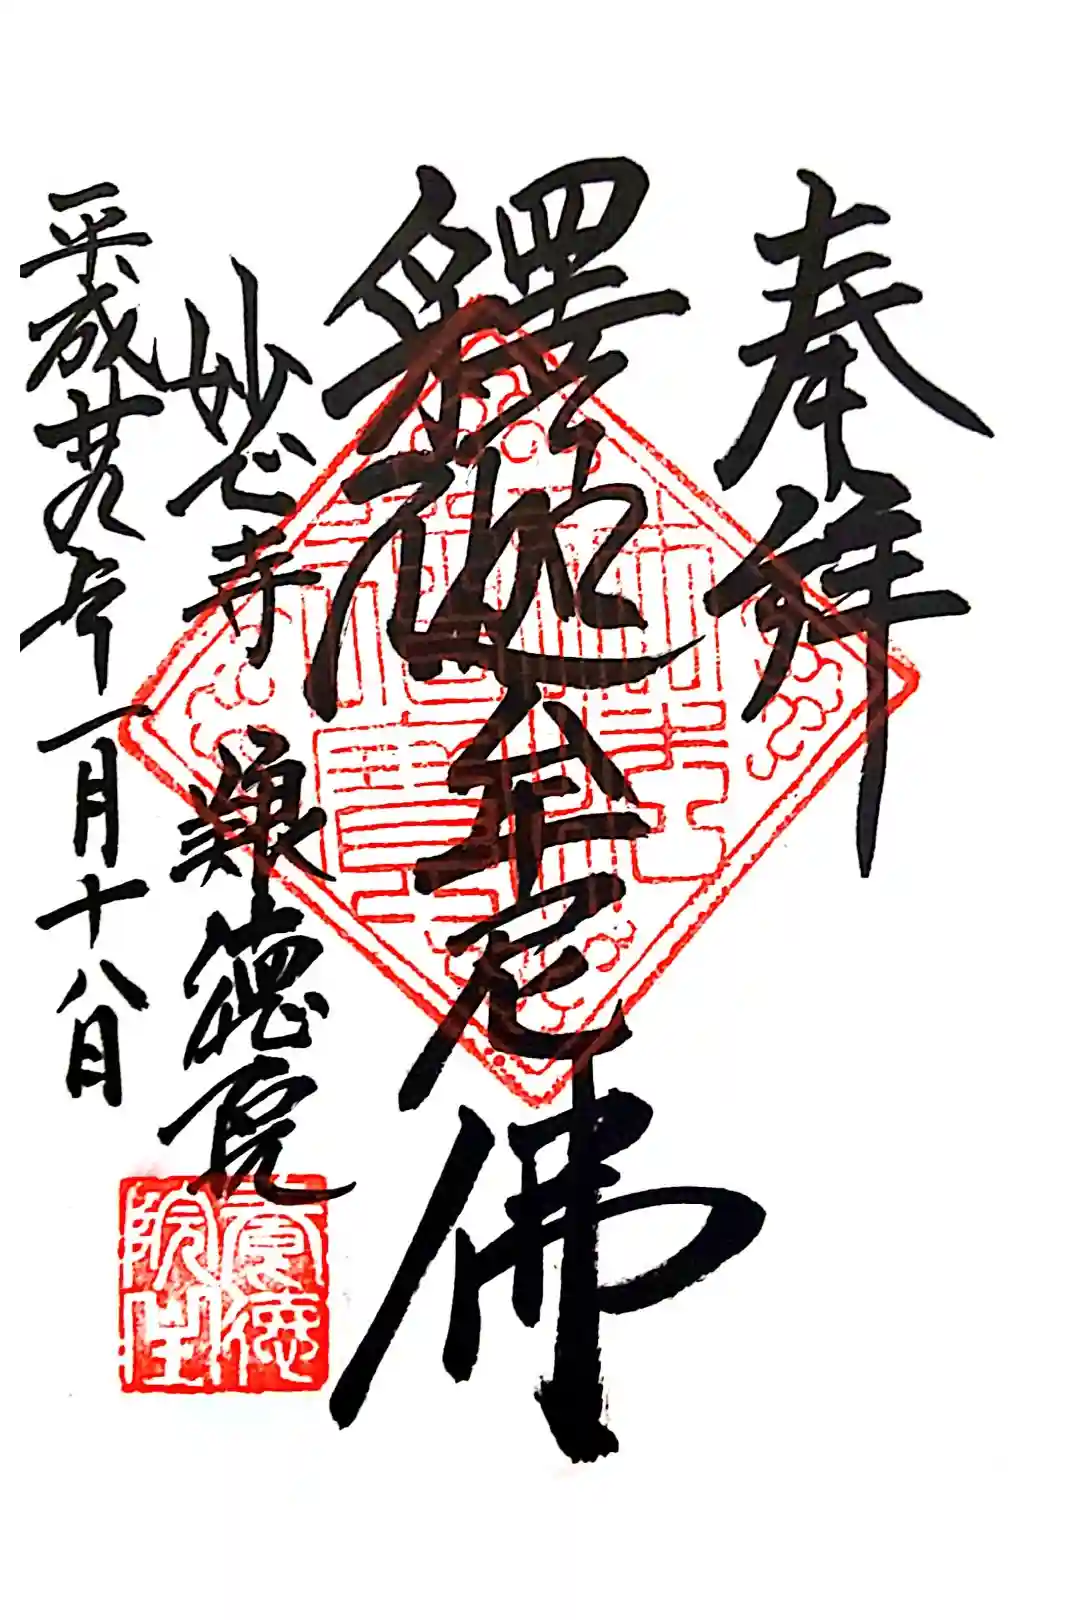 奉拝
釋迦牟尼佛
妙心寺 養德院
平成廿九年一月十八日